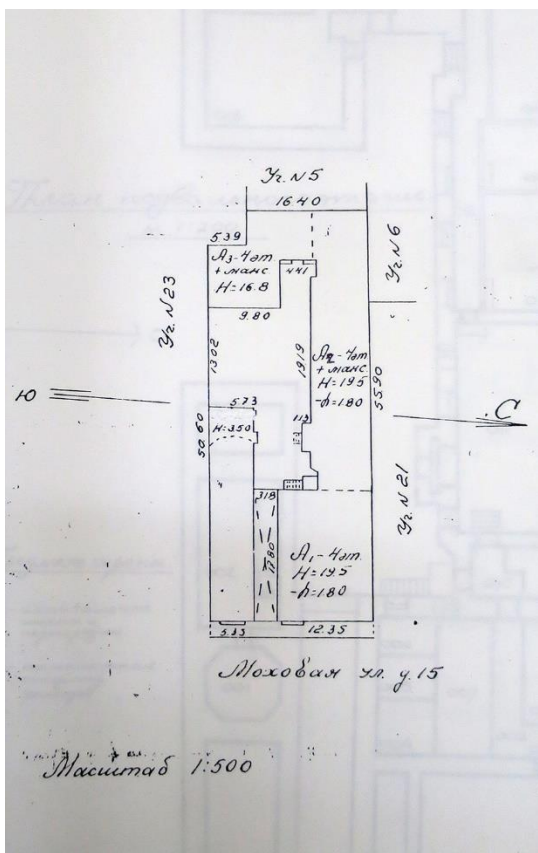 Уч. N5
16.40
5.39
А3-4эт
+ манс
H=16.8
4.41
Уч. N6
Уч. N23
9.80
13.02
19.19
А2-4эт
+ манс.
H=19.5
-h=1.80
55.90
Ю
С
5.73
H=3.50
1.13
50.60
Уч. N21
3.18
17.80
А1-4эт.
H=19.5
-h=1.80
5.33
12.35
Моховая ул. д.15
Масштаб 1:500